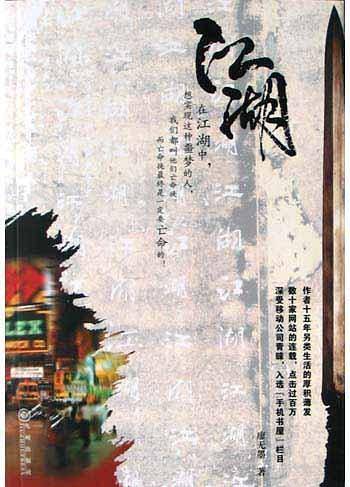 江湖
在江湖中，
想实现这种噩梦的人，
我们都叫他们亡命徒，
而亡命徒最终是一定要亡命的！
作者十五年另类生活的厚积薄发
数十家网站的连载，点击过百万
深受移动公司青睐，入选“手机书屋”栏目
廖无墨 著